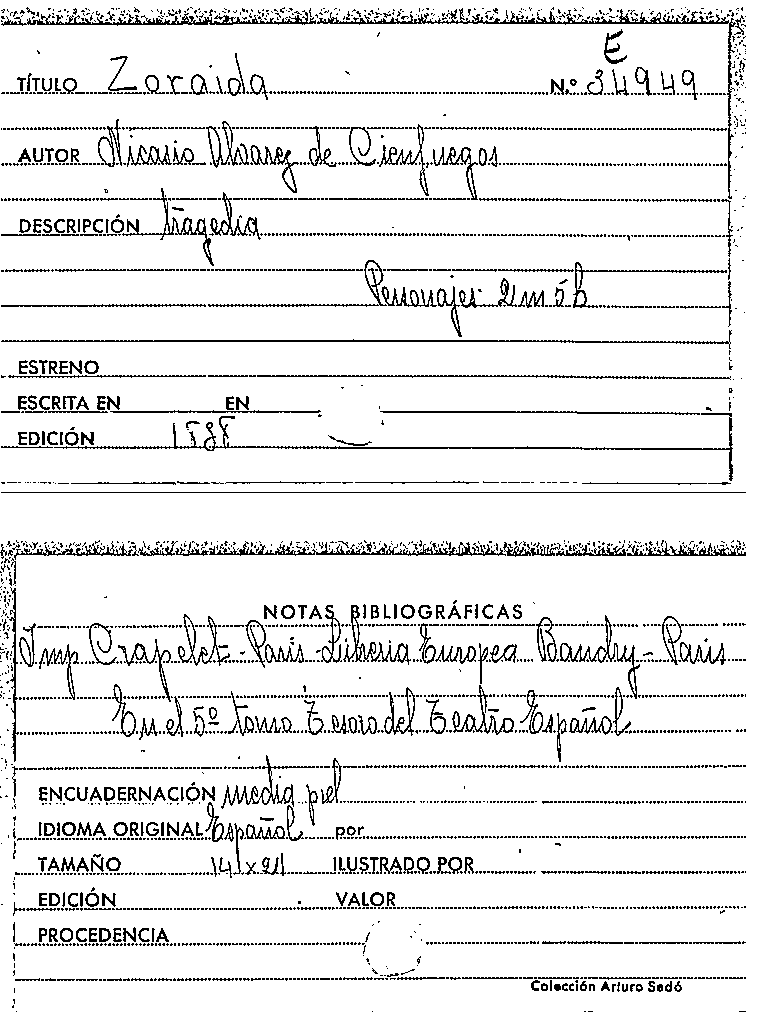 E
TÍTULO Zoraida N.º 34949
AUTOR Nicasio Alvarez de Cienfuegos
DESCRIPCIÓN tragedia
Personajes 2 m 5 h
ESTRENO
ESCRITA EN EN
EDICIÓN
NOTAS BIBLIOGRÁFICAS
Imp Crapelet - París - Libreria Europea Baudry - París
En el 5º tomo Tesoro del Teatro Español
ENCUADERNACIÓN media piel
IDIOMA ORIGINAL Español por
TAMAÑO 14 x 21 ILUSTRADO POR
EDICIÓN VALOR
PROCEDENCIA
Colección Arturo Sedó